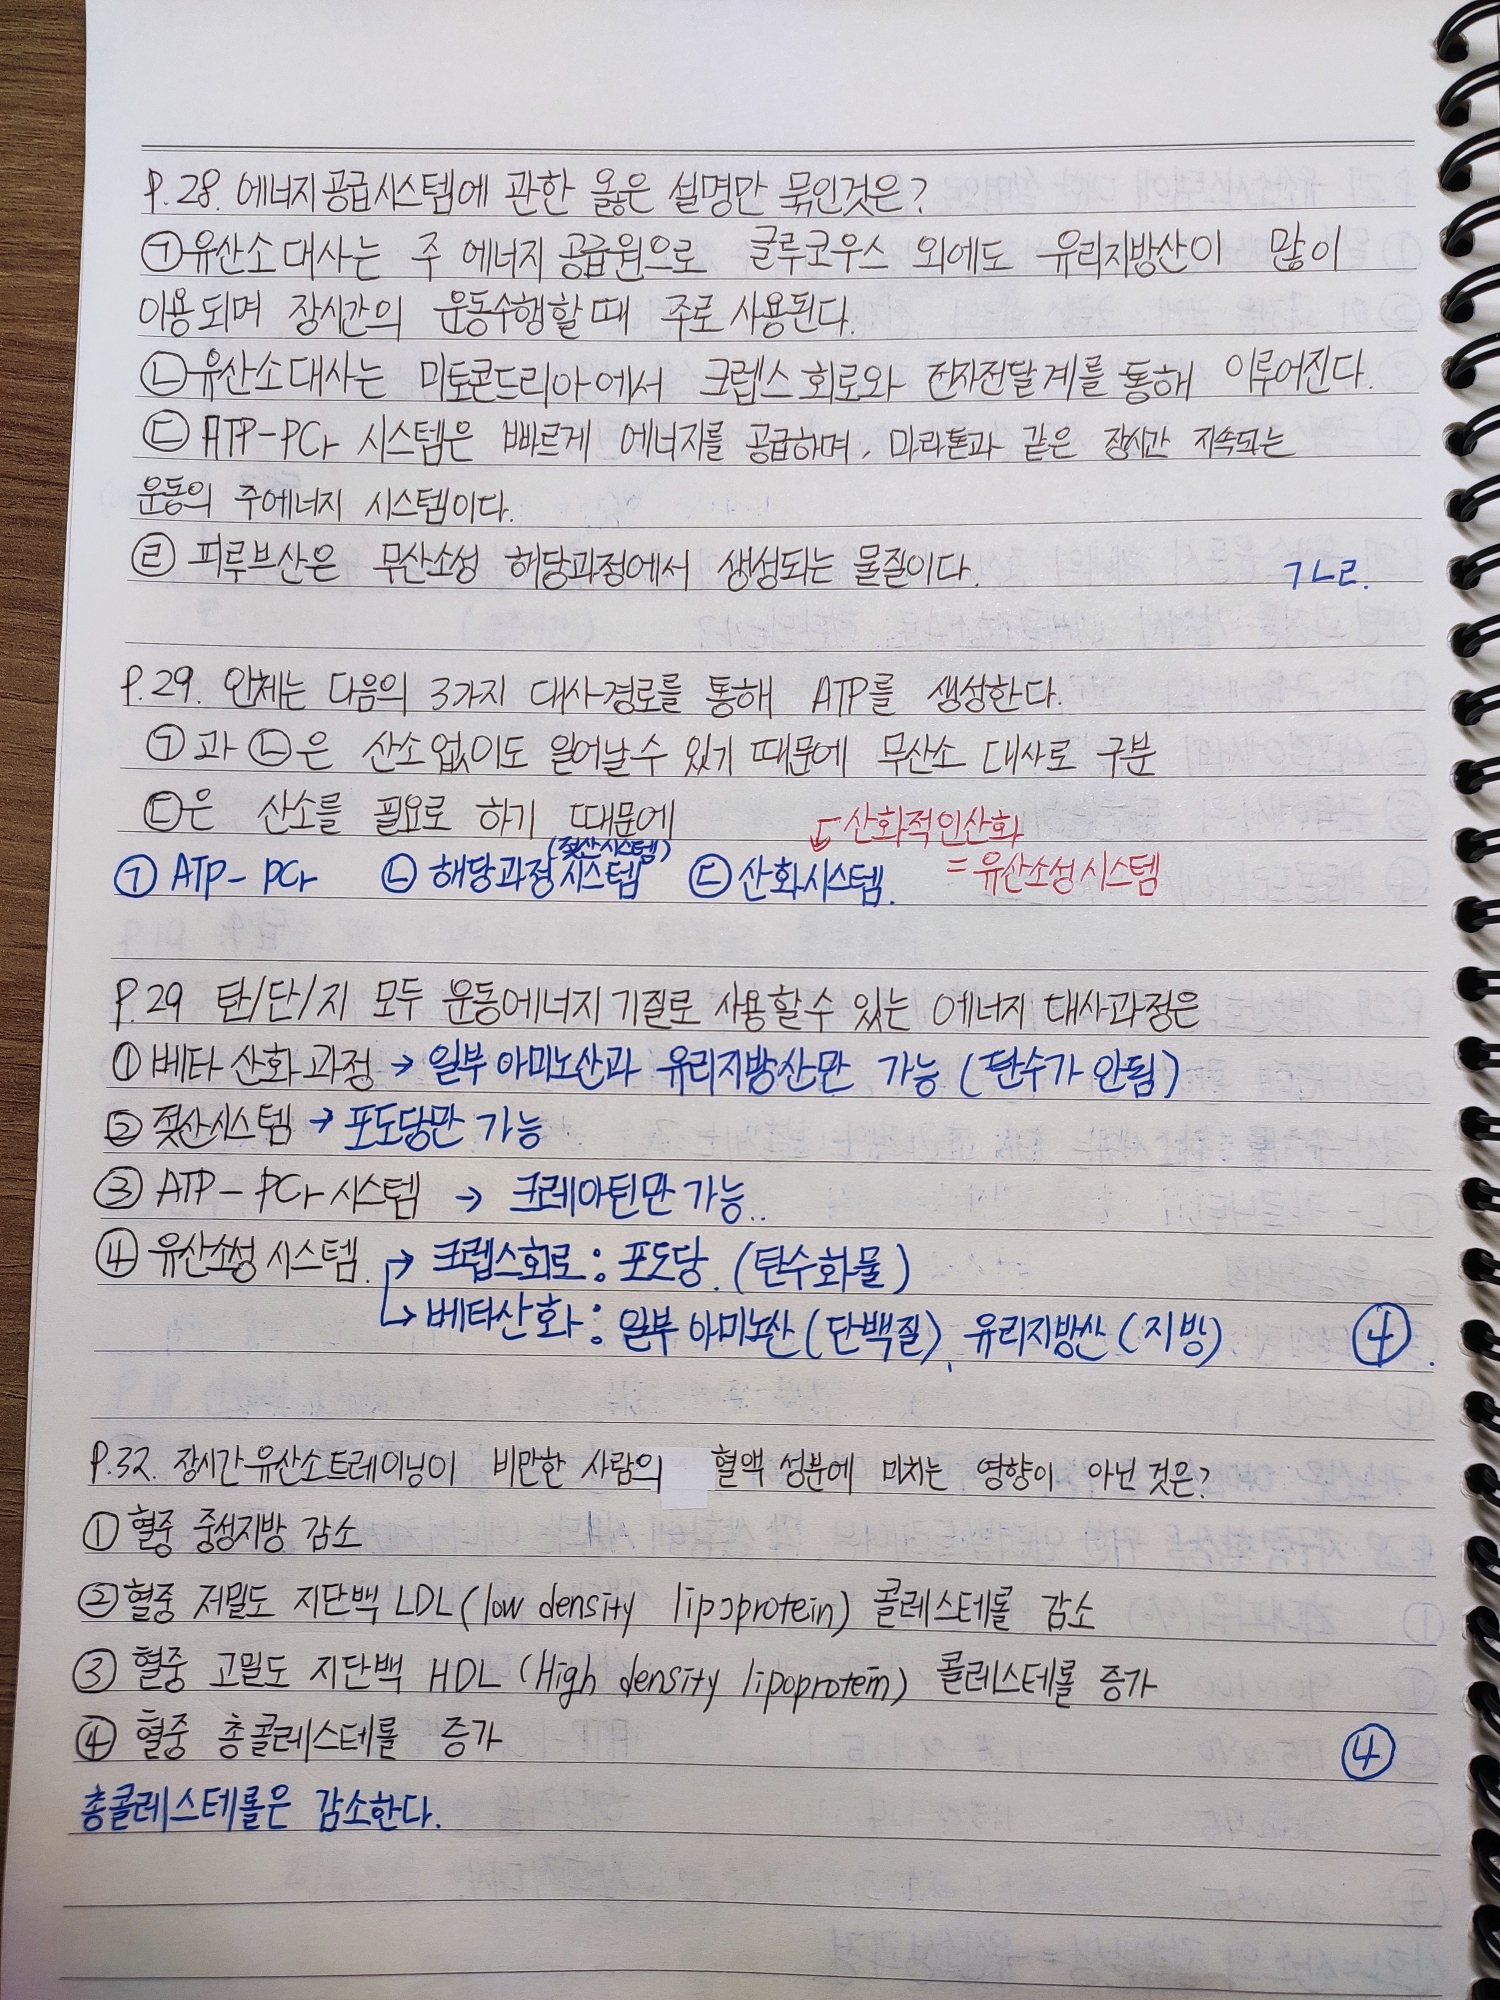 P.28. 에너지공급시스템에 관한 옳은 설명만 묶인것은?
㉠ 유산소대사는 주 에너지 공급원으로 글루코우스 외에도 유리지방산이 많이
이용되며 장시간의 운동수행할때 주로 사용된다.
㉡ 유산소대사는 미토콘드리아에서 크렙스 회로와 전자전달계를 통해 이루어진다.
㉢ ATP-PCr 시스템은 빠르게 에너지를 공급하며, 마라톤과 같은 장시간 지속되는
운동의 주에너지 시스템이다.
㉣ 피루브산은 무산소성 해당과정에서 생성되는 물질이다. ㄱㄴㄹ.
P.29. 인체는 다음의 3가지 대사경로를 통해 ATP를 생성한다.
㉠과 ㉡은 산소없이도 일어날수 있기 때문에 무산소 대사로 구분
㉢은 산소를 필요로 하기 때문에
→ 산화적인산화
(젖산시스템)
㉠ ATP-PCr ㉡ 해당과정시스템 ㉢ 산화시스템. = 유산소성시스템
P.29 탄/단/지 모두 운동에너지기질로 사용할수 있는 에너지 대사과정은
① 베타 산화과정 → 일부 아미노산과 유리지방산만 가능 (탄수가 안됨)
② 젖산시스템 → 포도당만 가능
③ ATP-PCr시스템 → 크레아틴만 가능..
④ 유산소성시스템. → 크렙스회로 : 포도당. (탄수화물)
↳ 베타산화 : 일부 아미노산(단백질), 유리지방산(지방) ④.
P.32. 장시간유산소트레이닝이 비만한 사람의 혈액 성분에 미치는 영향이 아닌것은?
① 혈중 중성지방 감소
② 혈중 저밀도 지단백 LDL(low density lipoprotein) 콜레스테롤 감소
③ 혈중 고밀도 지단백 HDL (High density lipoprotein) 콜레스테롤 증가
④ 혈중 총콜레스테롤 증가 ④
총콜레스테롤은 감소한다.